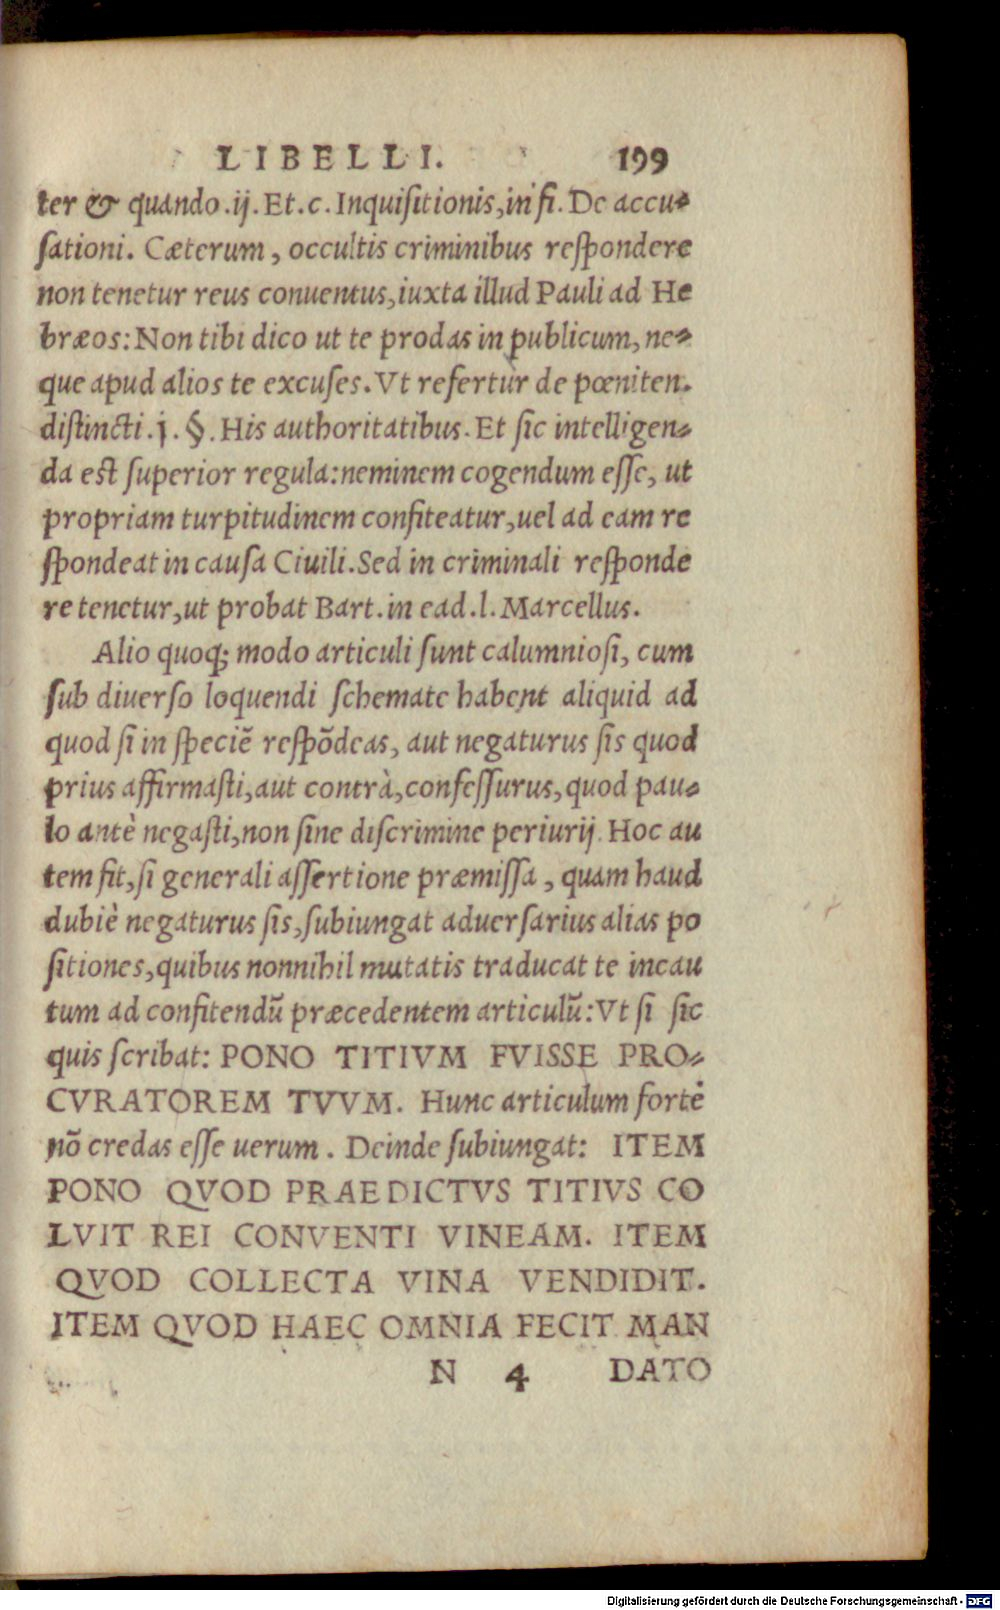 LIBELLI. 199
ter & quando .ij. Et .c. Inquiſitionis, in fi. De accu-
ſationi. Cæterum, occultis criminibus reſpondere
non tenetur reus conuentus, iuxta illud Pauli ad He
bræos: Non tibi dico ut te prodas in publicum, ne-
que apud alios te excuſes. Vt refertur de pœniten.
diſtincti .j. §. His authoritatibus. Et ſic intelligen-
da eſt ſuperior regula: neminem cogendum eſſe, ut
propriam turpitudinem confiteatur, uel ad eam re
ſpondeat in cauſa Ciuili. Sed in criminali reſponde
re tenetur, ut probat Bart. in ead. l. Marcellus.
Alio quoq; modo articuli ſunt calumnioſi, cum
ſub diuerſo loquendi ſchemate habent aliquid ad
quod ſi in ſpeciẽ reſpõdeas, aut negaturus ſis quod
prius affirmaſti, aut contrà, confeſſurus, quod pau-
lo antè negaſti, non ſine diſcrimine periurij. Hoc au
tem fit, ſi generali aſſertione præmiſſa, quam haud
dubiè negaturus ſis, ſubiungat aduerſarius alias po
ſitiones, quibus nonnihil mutatis traducat te incau
tum ad confitendũ præcedentem articulũ: Vt ſi ſic
quis ſcribat: PONO TITIVM FVISSE PRO-
CVRATOREM TVVM. Hunc articulum fortè
nõ credas eſſe uerum. Deinde ſubiungat: ITEM
PONO QVOD PRAEDICTVS TITIVS CO
LVIT REI CONVENTI VINEAM. ITEM
QVOD COLLECTA VINA VENDIDIT.
ITEM QVOD HAEC OMNIA FECIT MAN
N 4 DATO
Digitalisierung gefördert durch die Deutsche Forschungsgemeinschaft - DFG